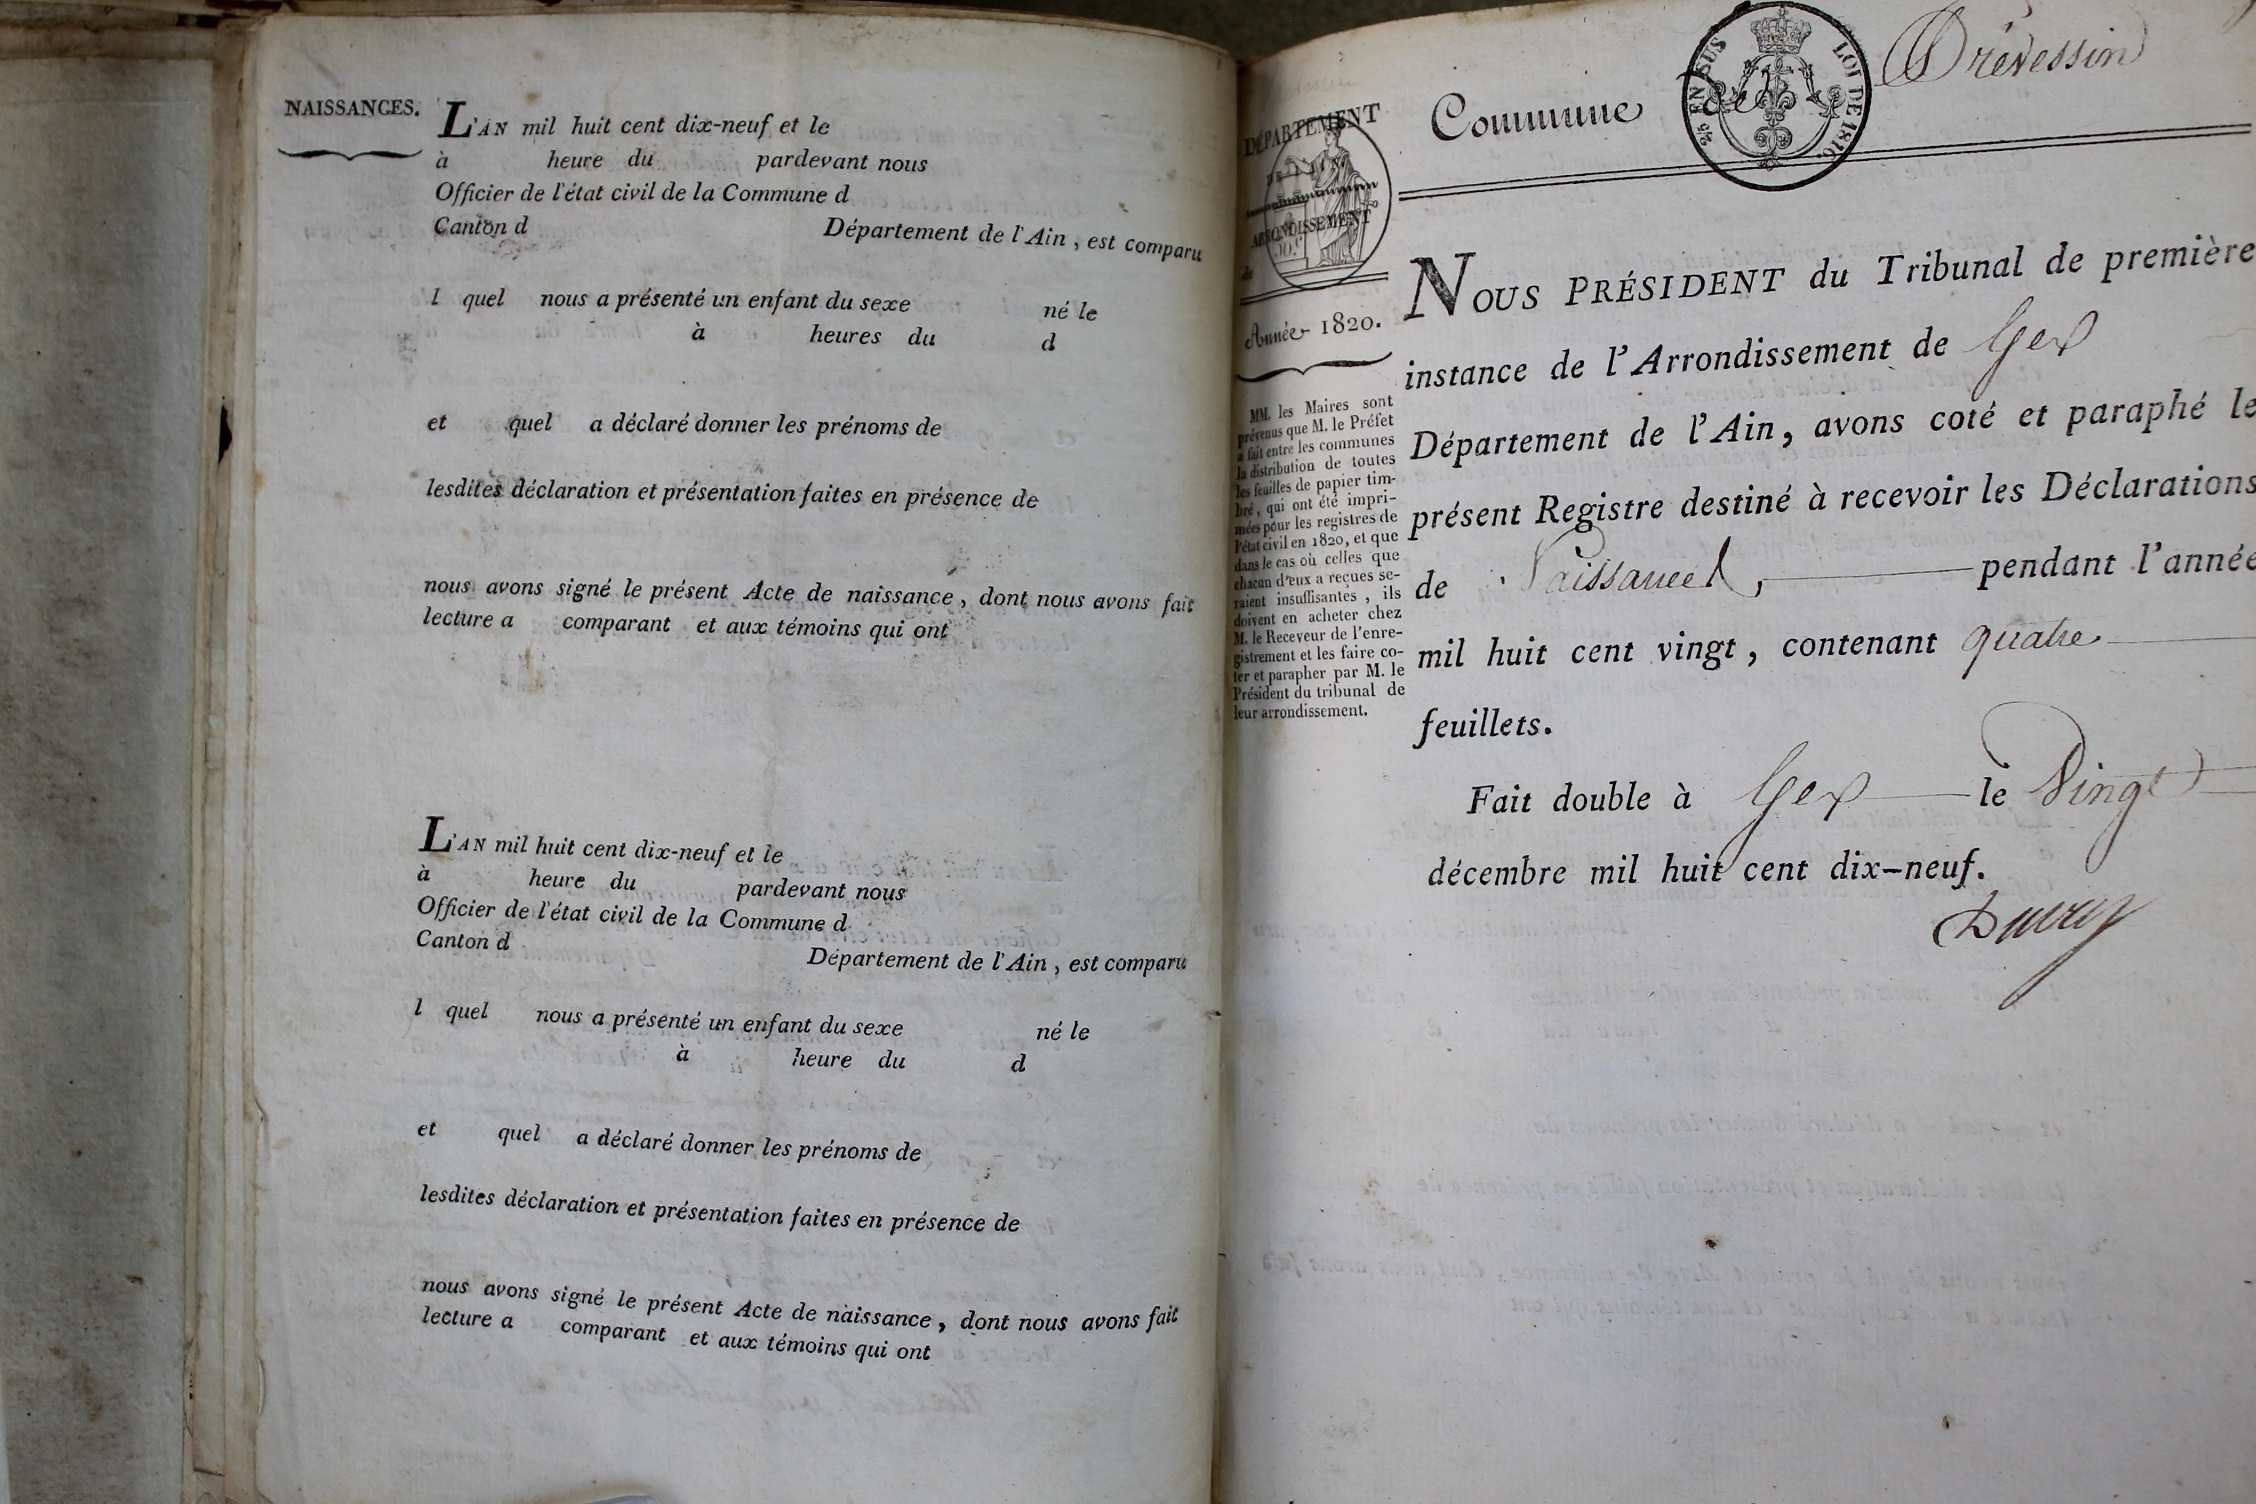 NAISSANCES.
L'AN mil huit cent dix-neuf et le
à heure du pardevant nous
Officier de l'état civil de la Commune d
Canton d Département de l'Ain, est comparu
l quel nous a présenté un enfant du sexe né le
à heures du d
et quel a déclaré donner les prénoms de
lesdites déclaration et présentation faites en présence de
nous avons signé le présent Acte de naissance, dont nous avons fait
lecture a comparant et aux témoins qui ont
L'AN mil huit cent dix-neuf et le
à heure du pardevant nous
Officier de l'état civil de la Commune d
Canton d Département de l'Ain, est comparu
l quel nous a présenté un enfant du sexe né le
à heure du d
et quel a déclaré donner les prénoms de
lesdites déclaration et présentation faites en présence de
nous avons signé le présent Acte de naissance, dont nous avons fait
lecture a comparant et aux témoins qui ont
Commune de Prévessin
25 EN SUS LOI DE 1816.
DÉPARTEMENT
DE L'AIN
ARRONDISSEMENT
de
Année 1820.
MM. les Maires sont
prévenus que M. le Préfet
a fait entre les communes
la distribution de toutes
les feuilles de papier tim-
bré, qui ont été impri-
mées pour les registres de
l'état civil en 1820, et que
dans le cas où celles que
chacun d'eux a reçues se-
raient insuffisantes, ils
doivent en acheter chez
M. le Receveur de l'enre-
gistrement et les faire co-
ter et parapher par M. le
Président du tribunal de
leur arrondissement.
NOUS PRÉSIDENT du Tribunal de première
instance de l'Arrondissement de Gex
Département de l'Ain, avons coté et paraphé le
présent Registre destiné à recevoir les Déclarations
de Naissances, pendant l'année
mil huit cent vingt, contenant quatre
feuillets.
Fait double à Gex le Vingt
décembre mil huit cent dix-neuf.